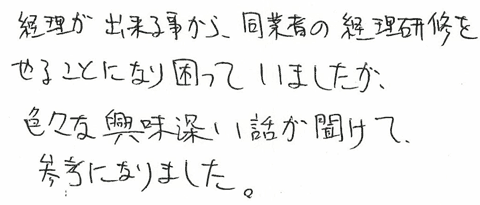 経理が出来る事から、同業者の経理研修を
やることになり困っていましたが、
色々な興味深い話が聞けて、
参考になりました。